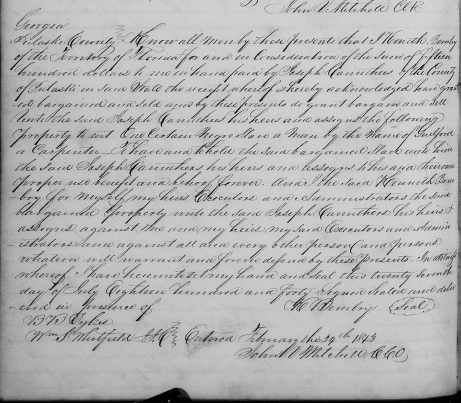 John V Mitchell Clk
Georgia
Pulaski County Know all men by these Presents that I Kenneth Bemby
of the Territory of Florida for and in Consideration of the Sum of fifteen
hundred dollars to me in hand paid by Joseph Carruthers of the County
of Pulaski in said State the receipt whereof is hereby acknowledged have grant
ed bargained and sold and by these presents do grant bargain and Sell
unto the said Joseph Carruthers his heirs and assigns the following
property to wit One Certain Negro Slave a Man by the Name of
a Carpenter To Have and to hold the said bargained Slave unto him
the said Joseph Carruthers his heirs and assigns to his and their own
proper use benefit and behoof forever And I the said Kenneth Bem
by for myself my heirs Executors and Administrators the said
bargained property unto the said Joseph Carruthers his heirs &
assigns against me and my heirs my said Executors and Admin
istrators and against all and every other person and persons
whatever will warrant and forever defend by these Presents In
whereof I have hereunto set my hand and Seal this twenty
day of July Eighteen hundred and forty Signed Sealed and deliv
ered in presence of K Bemby Seal
Wm S Whitfield Entered February the 24th 1843
John V Mitchell C C O